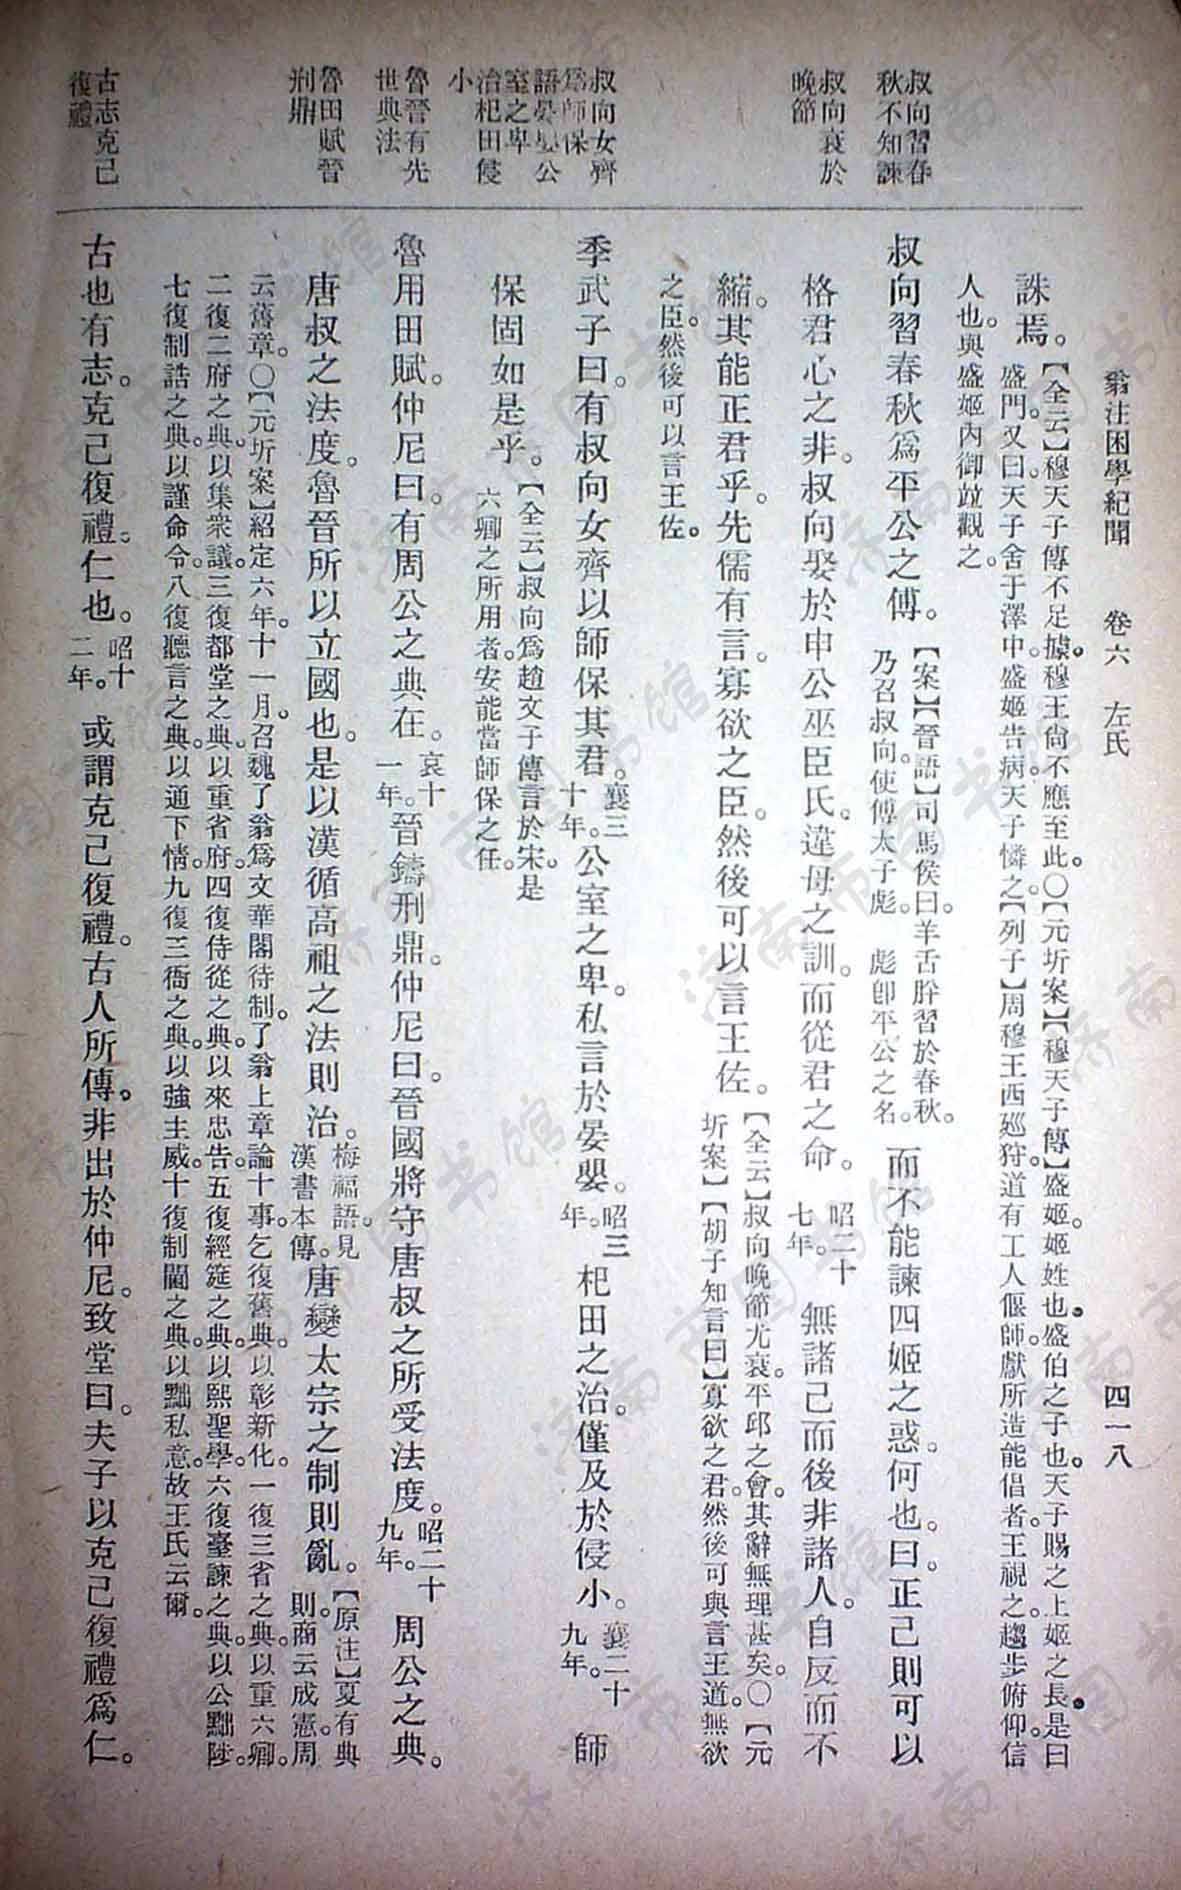 翁注困學紀聞　卷六　左氏　四一八
誅焉。【全云】穆天子傳不足據。穆王尙不應至此。〇【元圻案】【穆天子傳】盛姬。姬姓也。盛伯之子也。天子賜之上姬之長。是曰
盛門。又曰。天子舍于澤中。盛姬告病。天子憐之。【列子】周穆王西廵狩。道有工人偃師。獻所造能倡者。王視之。趨步俯仰。信
人也。與盛姬內御竝觀之。
叔向習春秋不知諫
叔向習春秋爲平公之傅。【案】【晉語】司馬侯曰。羊舌肸習於春秋。乃召叔向。使傅太子彪。彪卽平公之名。而不能諫四姬之惑。何也。曰。正己則可以
叔向衰於晚節
格君心之非。叔向娶於申公巫臣氏。違母之訓。而從君之命。昭二十七年。無諸己而後非諸人。自反而不
縮。其能正君乎。先儒有言。寡欲之臣。然後可以言王佐。【全云】叔向晚節尤衰。平邱之會。其辭無理甚矣。〇【元圻案】【胡子知言曰】寡欲之君。然後可與言王道。無欲
之臣。然後可以言王佐。
叔向女齊爲師保
語晏嬰公室之卑
治杞田侵小
季武子曰。有叔向女齊以師保其君。襄三十年。公室之卑。私言於晏嬰。昭三年。杞田之治。僅及於侵小。襄二十九年。師
保固如是乎。【全云】叔向爲趙文子傳言於宋。是六卿之所用者。安能當師保之任。
魯晉有先世典法
魯用田賦。仲尼曰。有周公之典在。哀十一年。晉鑄刑鼎。仲尼曰。晉國將守唐叔之所受法度。昭二十九年。周公之典。
魯田賦晉刑鼎
唐叔之法度。魯晉所以立國也。是以漢循高祖之法則治。梅福語。見漢書本傳。唐變太宗之制則亂。【原注】夏有典則。商云成憲。周
云舊章。〇【元圻案】紹定六年。十一月。召魏了翁爲文華閣待制。了翁上章論十事。乞復舊典。以彰新化。一復三省之典。以重六卿。
二復二府之典。以集衆議。三復都堂之典。以重省府。四復侍從之典。以來忠告。五復經筵之典。以熙聖學。六復臺諫之典。以公黜陟。
七復制誥之典。以謹命令。八復聽言之典。以通下情。九復三衙之典。以強主威。十復制閫之典。以黜私意。故王氏云爾。
古志克己復禮
古也有志。克己復禮。仁也。昭十二年。或謂克己復禮。古人所傳。非出於仲尼。致堂曰。夫子以克己復禮爲仁。